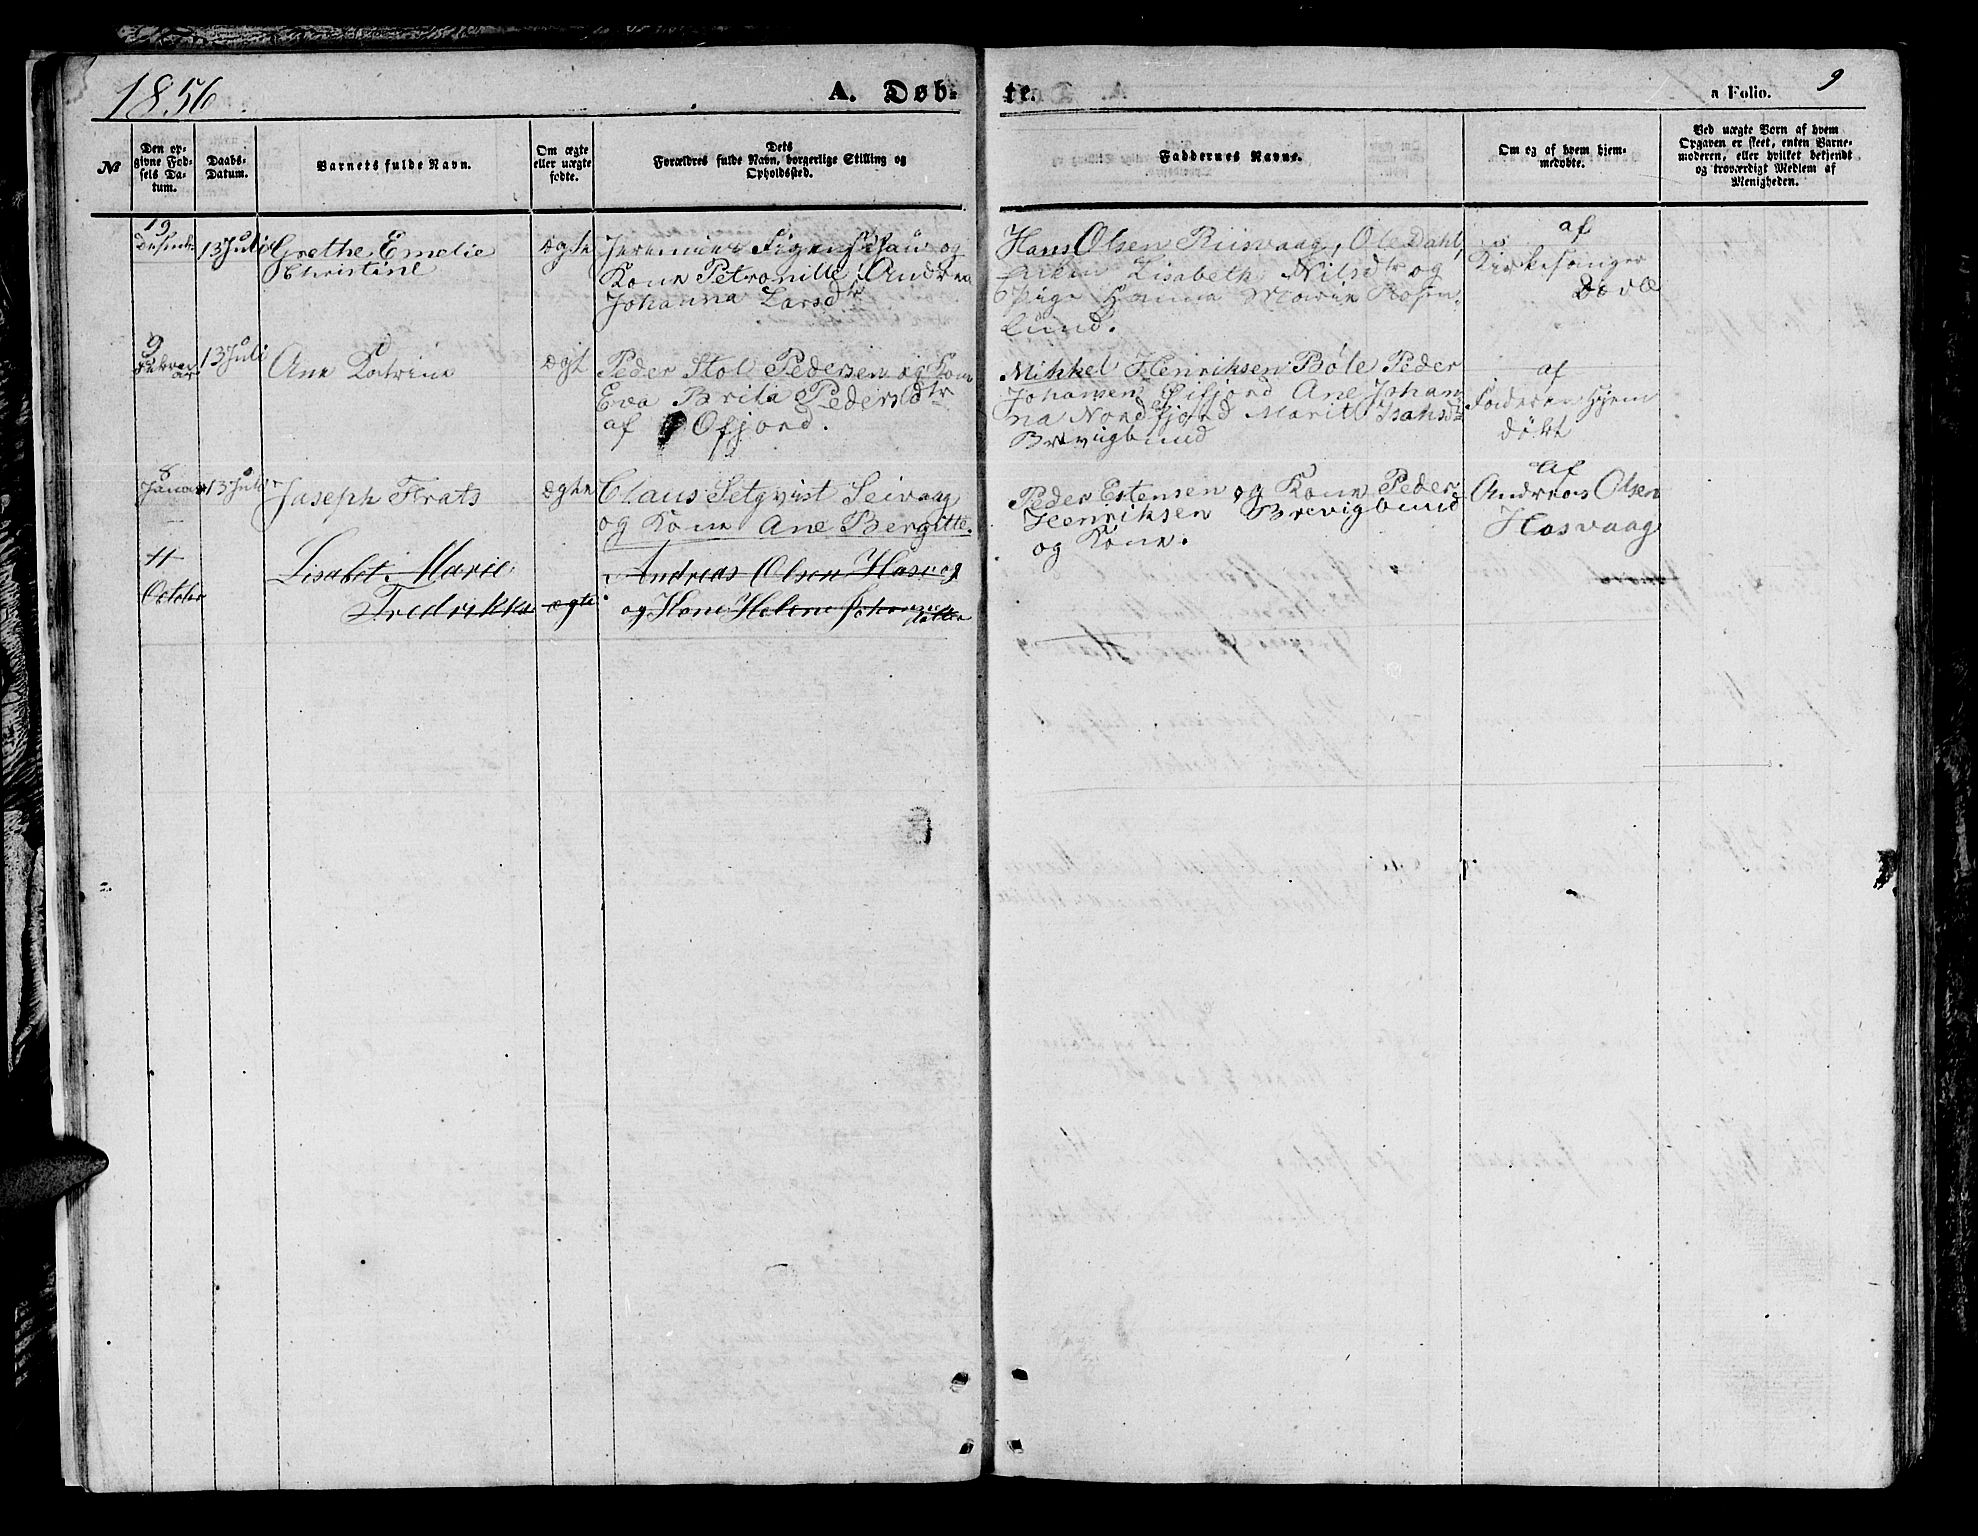 1856
A. Døb-
te.
a Folio. 9
№
Den op-
givne Fød-
sels Da-
tum.
Daabs-
Datum.
Barnets fulde Navn.
Om ægte
eller uægte
fødte.
Dets
Forældres fulde Navn, borgerlige Stilling og
Opholdssted.
Faddernes Navne.
Om og af hvem hjem-
medøbte.
Ved uægte Børn af hvem
Opgaven er skeet, enten Barne-
moderen, eller hvilket bekjendt
og troværdigt Medlem af
Menigheden.
19
13 Juli
Grethe Emelie
Christine
ægte
Jeremias og
Kone Petronille Andrea
Johanna Larsdtr
Hans Olsen Riisvaag, Ole Dahl,
Lisabeth Nilsdtr og
Pige Hanna Marie Rosen-
lund.
af
Kirkesanger
9
Februar
13 Juli
Ane Katrine
ægt
Peder Stol Pedersen og Kone
Eva Brita Pedersdtr
af Øfjord.
Mikkel Henriksen Bøle Peder
Johansen Øifjord Ane Johan
na Nordfjord Marit Isahsdtr
Brevigbund
af
Faderen Hjem
døbt
8
Januar
13 Juli
Joseph Strats
ægte
Claus Setqvist Seivaag
og Kone Ane Bergitte.
Peder Estensen og Kone Peder
Henriksen Brevigbund
og Kone.
af
Andreas Olsen
Hasvaag
11
October
Lisabet Marie
Fredrikke
ægte
Andreas Olsen Hasvog
og Kone Helene Johannes
datter